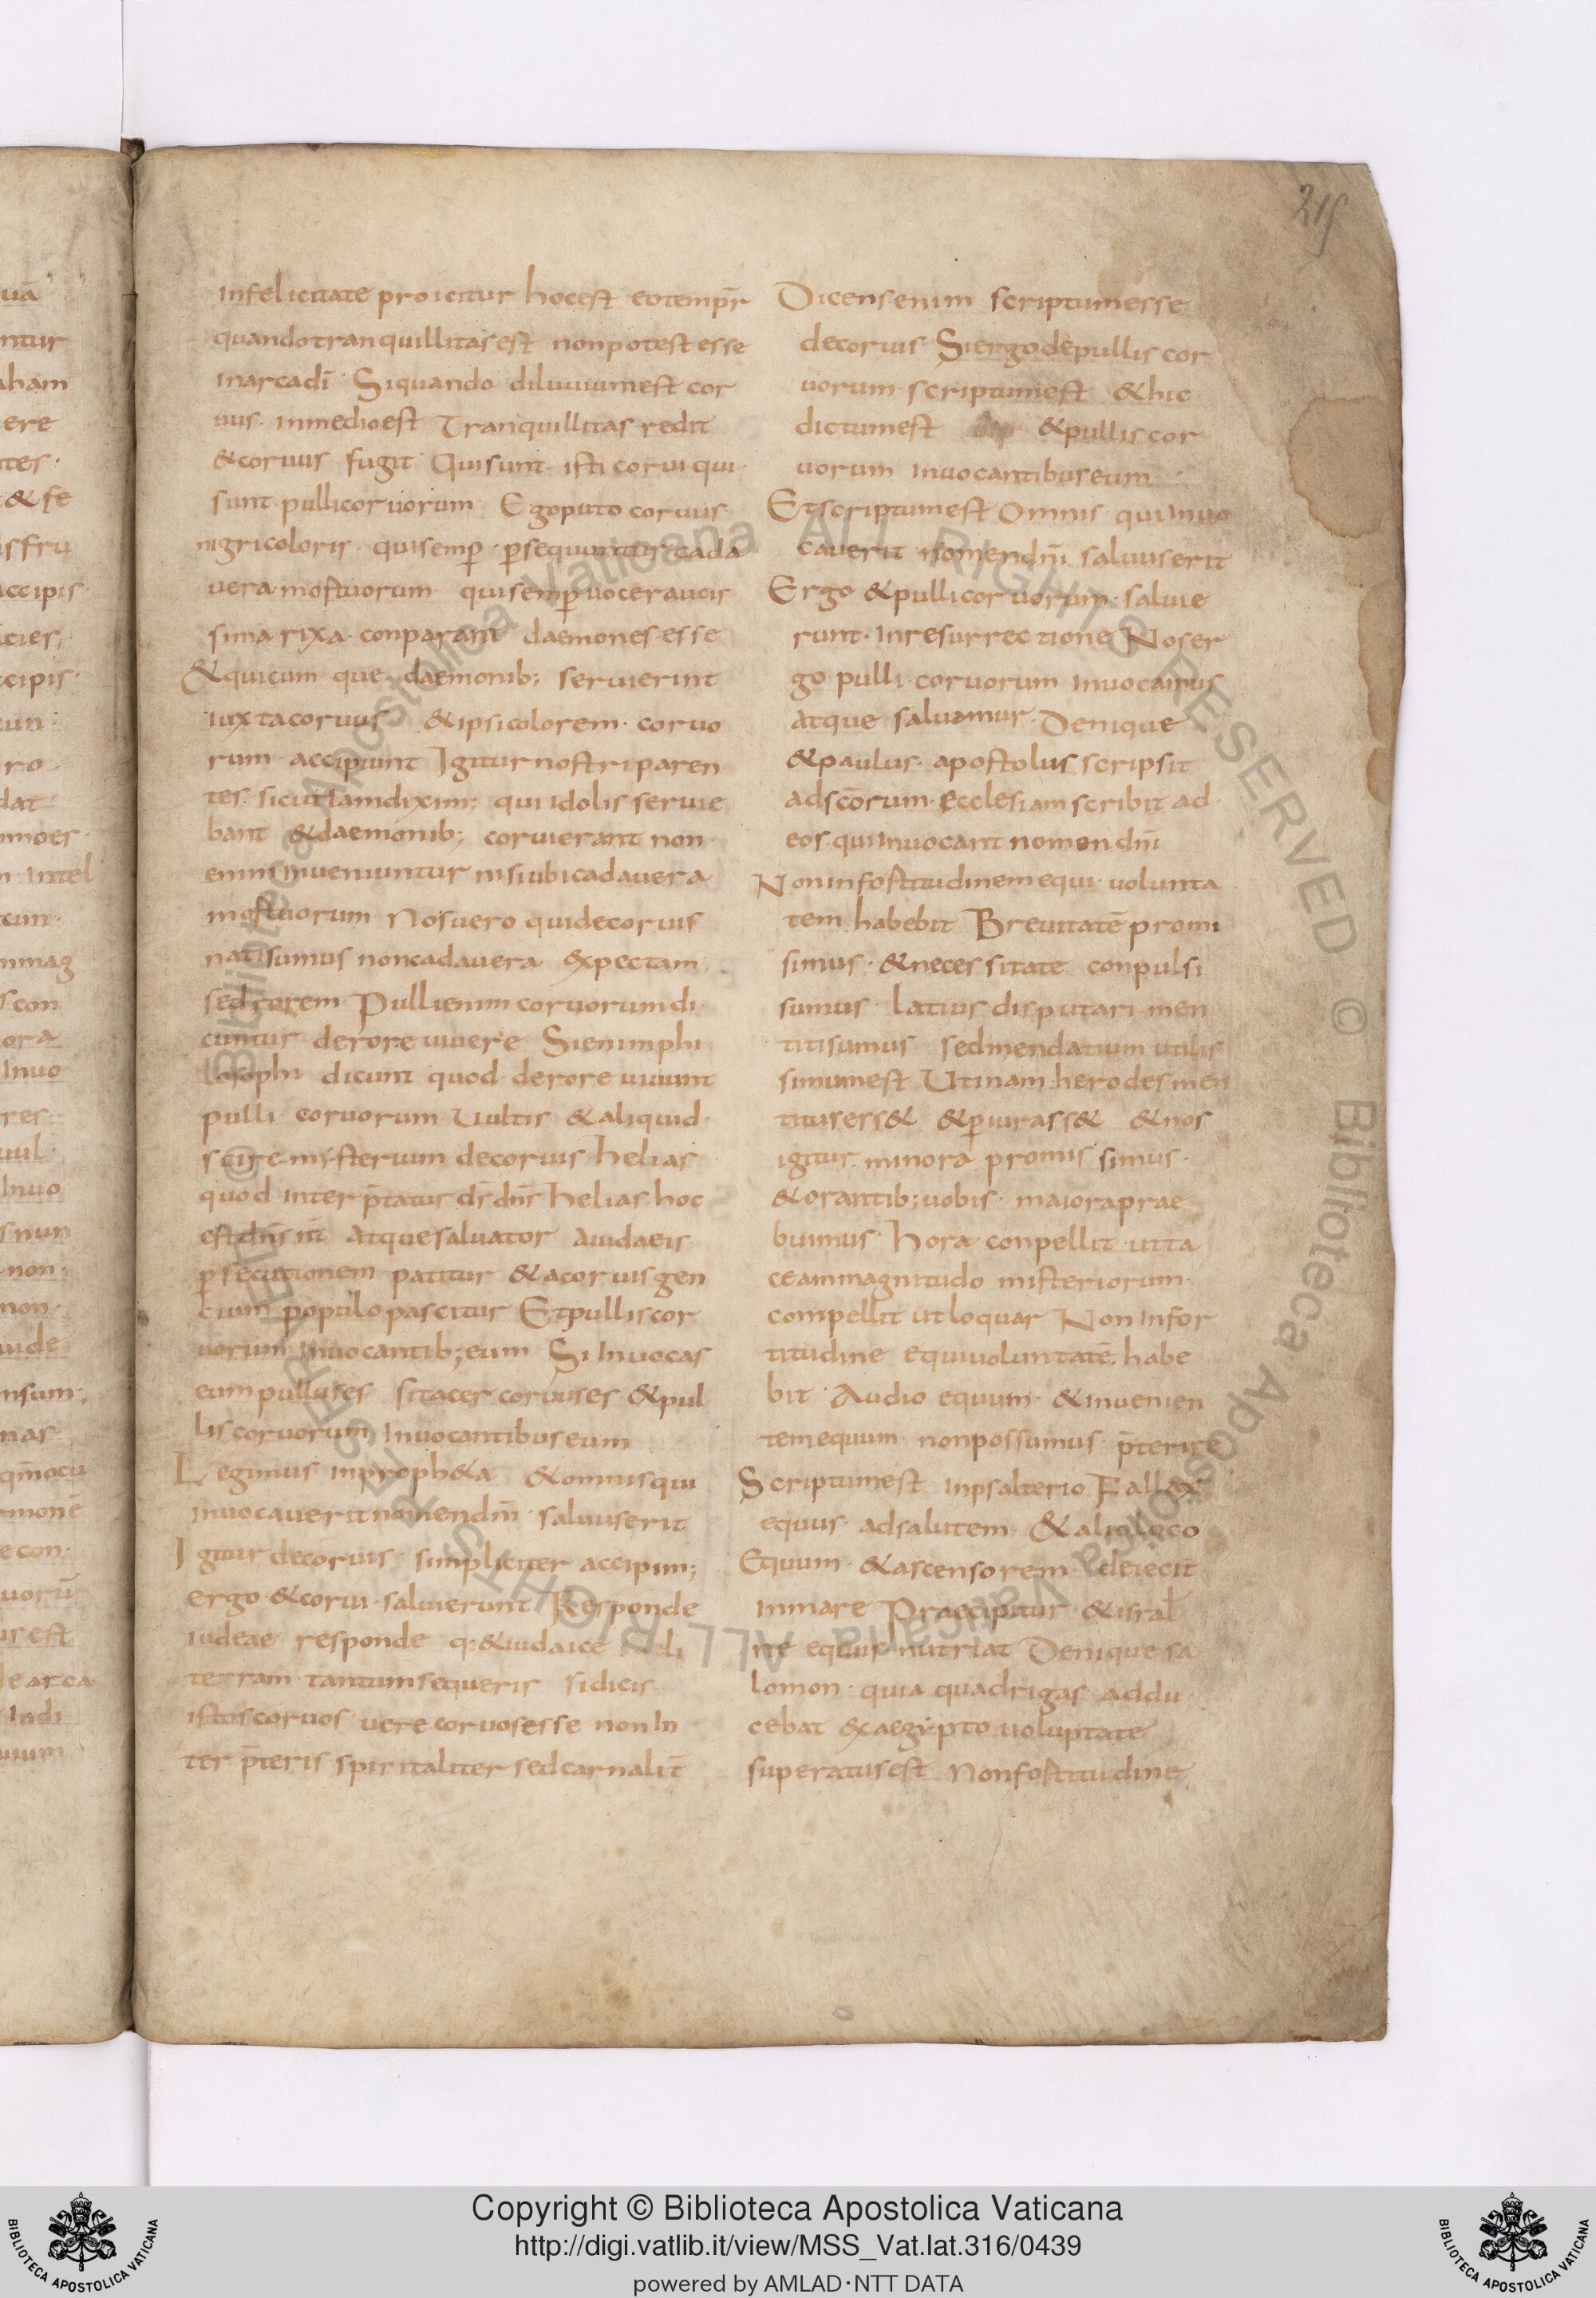 215
infelicitate proicitur hocest eotempr̄
quandotranquillitasest nonpotestesse
inarcadī Siquando diluuiumest cor
uus. inmedioest Tranquillitas redit
&coruus fugit Quisunt. isti corui qui.
sunt. pullicoruorum. Egoputo coruus.
nigricoloris. quisemp̄ p̄sequuntur. cada
uera mortuorum quisemp̄uoceraucis
sima rixa. conparant daemones.esse
&quicum que. daemonib; seruierint
iuxtacoruus &ipsicolorem. coruo
rum. accipiunt Igiturnostriparen
tes. sicutiamdixim; quiidolisseruie
bant &daemonib; coruierant non
eniminueniuntur nisiubicadauera
mortuorum Nosuero quidecoruis
natisumus noncadauera expectam
sedrorem Pullienim coruorumdi.
cuntur derore uiuere Sienimphi
losophi dicunt quod derore uiuunt
pulli coruorum Uultis &aliquid.
scire mysterium decoruis helias
quod interp̄tatur dr̄dn̄s helias.hoc
estdn̄s nī Atquesaluator Aiudaeis
p̄secutionem patitur &acoruisgen
cium populopascitur Etpulliscor
uorum inuocantib;eum Si Inuocas
eumpulluses sitacer coruuses &pul
lis coruorum inuocantibuseum
Legimus inproph&a &omnisqui
inuocaueritnomendn̄i saluuserit
Igitur decoruis. simpliciter accipim;
ergo.&corui.saluierunt Responde
iudeae responde q:&iudaice
terram tantumsequeris sidicis
istoscoruos uerecoruosesse nonin
ter p̄teris spiritaliter sedcarnalit̄
Dicensenim scriptumesse
decoruis Siergodepullis cor
uorum scriptumest &hic
dictumest &pullis cor
uorum inuocantibuseum
Etscriptumest Omnis. quiinuo
cauerit nomendn̄i saluuserit
Ergo &pullicoruorum. saluie
runt. Inresurrectione Noser
go pulli. coruorum inuocamus
atque saluamur. Denique
&paulus. apostolus scripsit
adscōrum. Ecclesiam scribit ad
eos. quiInuocant nomen dn̄i
Noninfortitudinemequi uolunta
tem habebit Breuitatē promi
simus. &neces sitate conpulsi
sumus. Latius disputari men
titisumus sedmendatium utilis
simumest Utinam.herodesmen
titusess& &p̄iurass& &nos
igitur. minora promis simus.
&orantib;uobis. maioraprae
buimus. hora conpellit utta
ceammagnitudo misteriorum.
compellit utloquar Non Infor
titudine equiuoluntatē. habe
bit Audio equum. &inuenien
temequum nonpossumus p̄terire
Scriptumest Inpsalterio Fallax
equus. adsalutem. &alioloco
Equum. &ascensorem deiecit
inmare Praecipitur &isral̄
ne equus nutriat Denique sa
lomon. quia quadrigas addu
cebat exaegypto uoluptate
superatusest Nonfortitudine
Copyright © Biblioteca Apostolica Vaticana
http://digi.vatlib.it/view/MSS_Vat.lat.316/0439
powered by AMLAD·NTT DATA
BIBLIOTECA APOSTOLICA VATICANA
BIBLIOTECA APOSTOLICA VATICANA
© Biblioteca Apostolica Vaticana ALL RIGHTS RESERVED
© Biblioteca Apostolica Vaticana ALL RIGHTS RESERVED